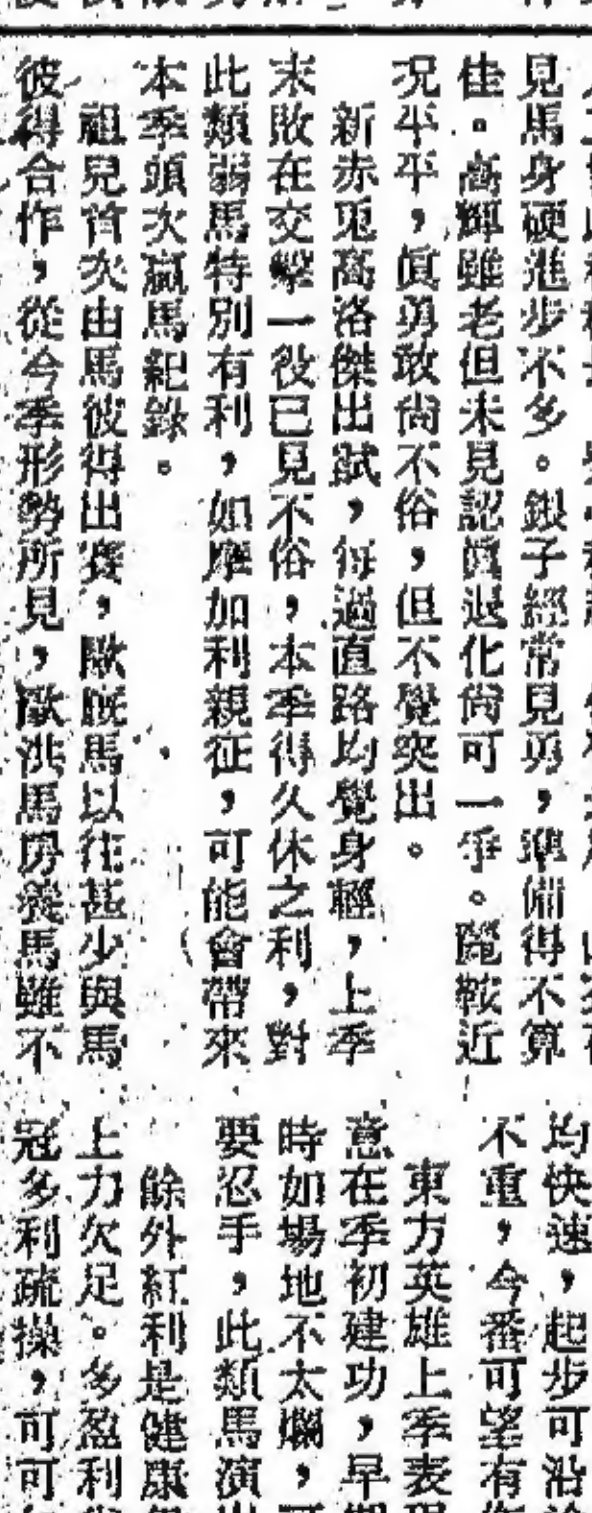 見馬身硬進步不多。銀子經常見勇，準備得不算
佳。高輝雖老但未見認眞退化尙可一爭。雕鞍近
况平平，眞勇敢尙不俗，但不覺突出。
新赤兎高洛傑出試，每過直路均覺身輕，上季
末敗在交擊一役已見不俗，本季得久休之利，對
此類弱馬特別有利，如摩加利親征，可能會帶來
本季頭次贏馬紀錄。
祖兒首次由馬彼得出賽，歐厩馬以往甚少與馬
彼得合作，從今季形勢所見，歐洪馬房養馬雖不
均快速，起步可沿
不重，今番可望有
東方英雄上季表現
意在季初建功，早期
時如場地不太爛，可
要忍手，此類馬演出
餘外紅利是健康
上力欠足。多盈利
冠多利疏操，可可